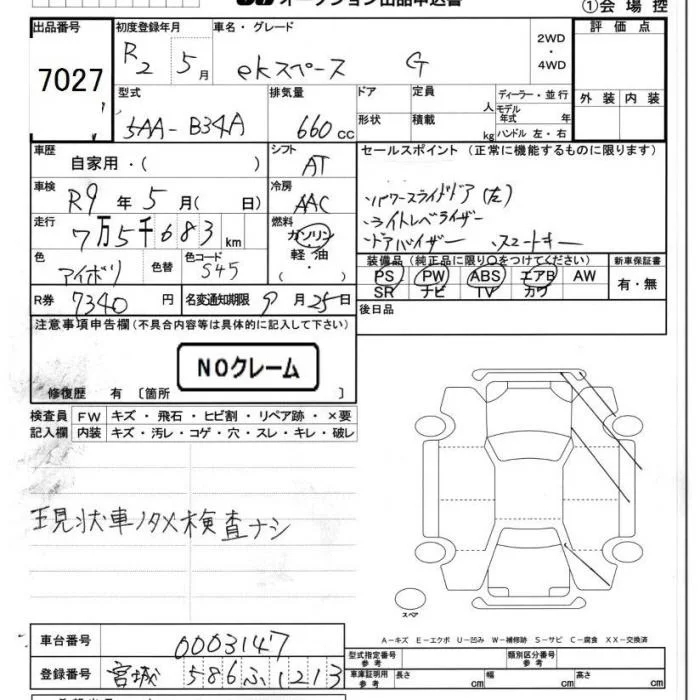 オークション出品申込書
①会場控
出品番号 初度登録年月 車名・グレード 2WD・4WD 評価点
7027 R2 5月 ekスペース G
型式 排気量 ドア 定員 人 ディーラー・並行 外装 内装
5AA-B34A 660cc 形状 積載 kg モデル年式 年 ハンドル 左・右
車歴 自家用・( ) シフト AT セールスポイント (正常に機能するものに限ります)
車検 R9年5月( 日) 冷房 AAC ・パワースライドドア(左)
走行 7万5千683km 燃料 ガソリン 軽油・( ) ・ライトレベライザー
・ドアバイザー スマートキー
色 アイボリ 色替 色コード S45 装備品(純正品に限り○をつけてください) 新車保証書
PS PW ABS エアB AW 有・無
SR ナビ TV カワ
R券 7340円 名変通知期限 9月25日 後日品
注意事項申告欄(不具合内容等は具体的に記入して下さい)
NOクレーム
修復歴 有〔箇所 〕
検査員記入欄 FW キズ・飛石・ヒビ割・リペア跡・×要
内装 キズ・汚レ・コゲ・穴・スレ・キレ・破レ
現状車ノタメ検査ナシ
スペア
A-キズ E-エクボ U-凹み W-補修跡 S-サビ C-腐食 XX-交換済
車台番号 0003147 型式指定番号 参考 類別区分番号 参考
登録番号 宮城 586 ふ 1213 車庫証明用 参考 長さ cm 幅 cm 高さ cm